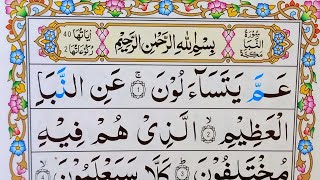 سُوْرَةُ النَّبَاِ مَكِّيَّةٌ
بِسْمِ اللّٰهِ الرَّحْمٰنِ الرَّحِيْمِ
اٰيَاتُهَا 40 رُكُوْعَاتُهَا 2
عَمَّ يَتَسَآءَلُوْنَ ۚ ۱ عَنِ النَّبَاِ
الْعَظِيْمِ ۙ ۲ الَّذِىْ هُمْ فِيْهِ
مُخْتَلِفُوْنَ ؕ ۳ كَلَّا سَيَعْلَمُوْنَ ۙ ۴